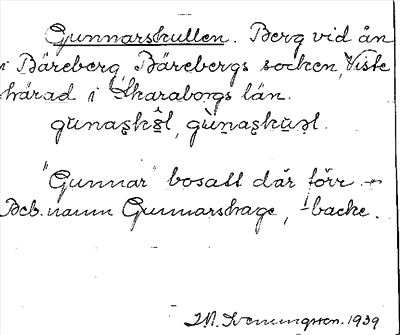 Gunnarskullen. Berg vid ån
i Bäreberg, Bärebergs socken, Viste
härad i Skaraborgs län.
gŭnaʂkʂ̂l, gùnaʂkuəl.
"Gunnar" bosatt där förr. –
Beb.namn Gunnarshage, -backe.
1939